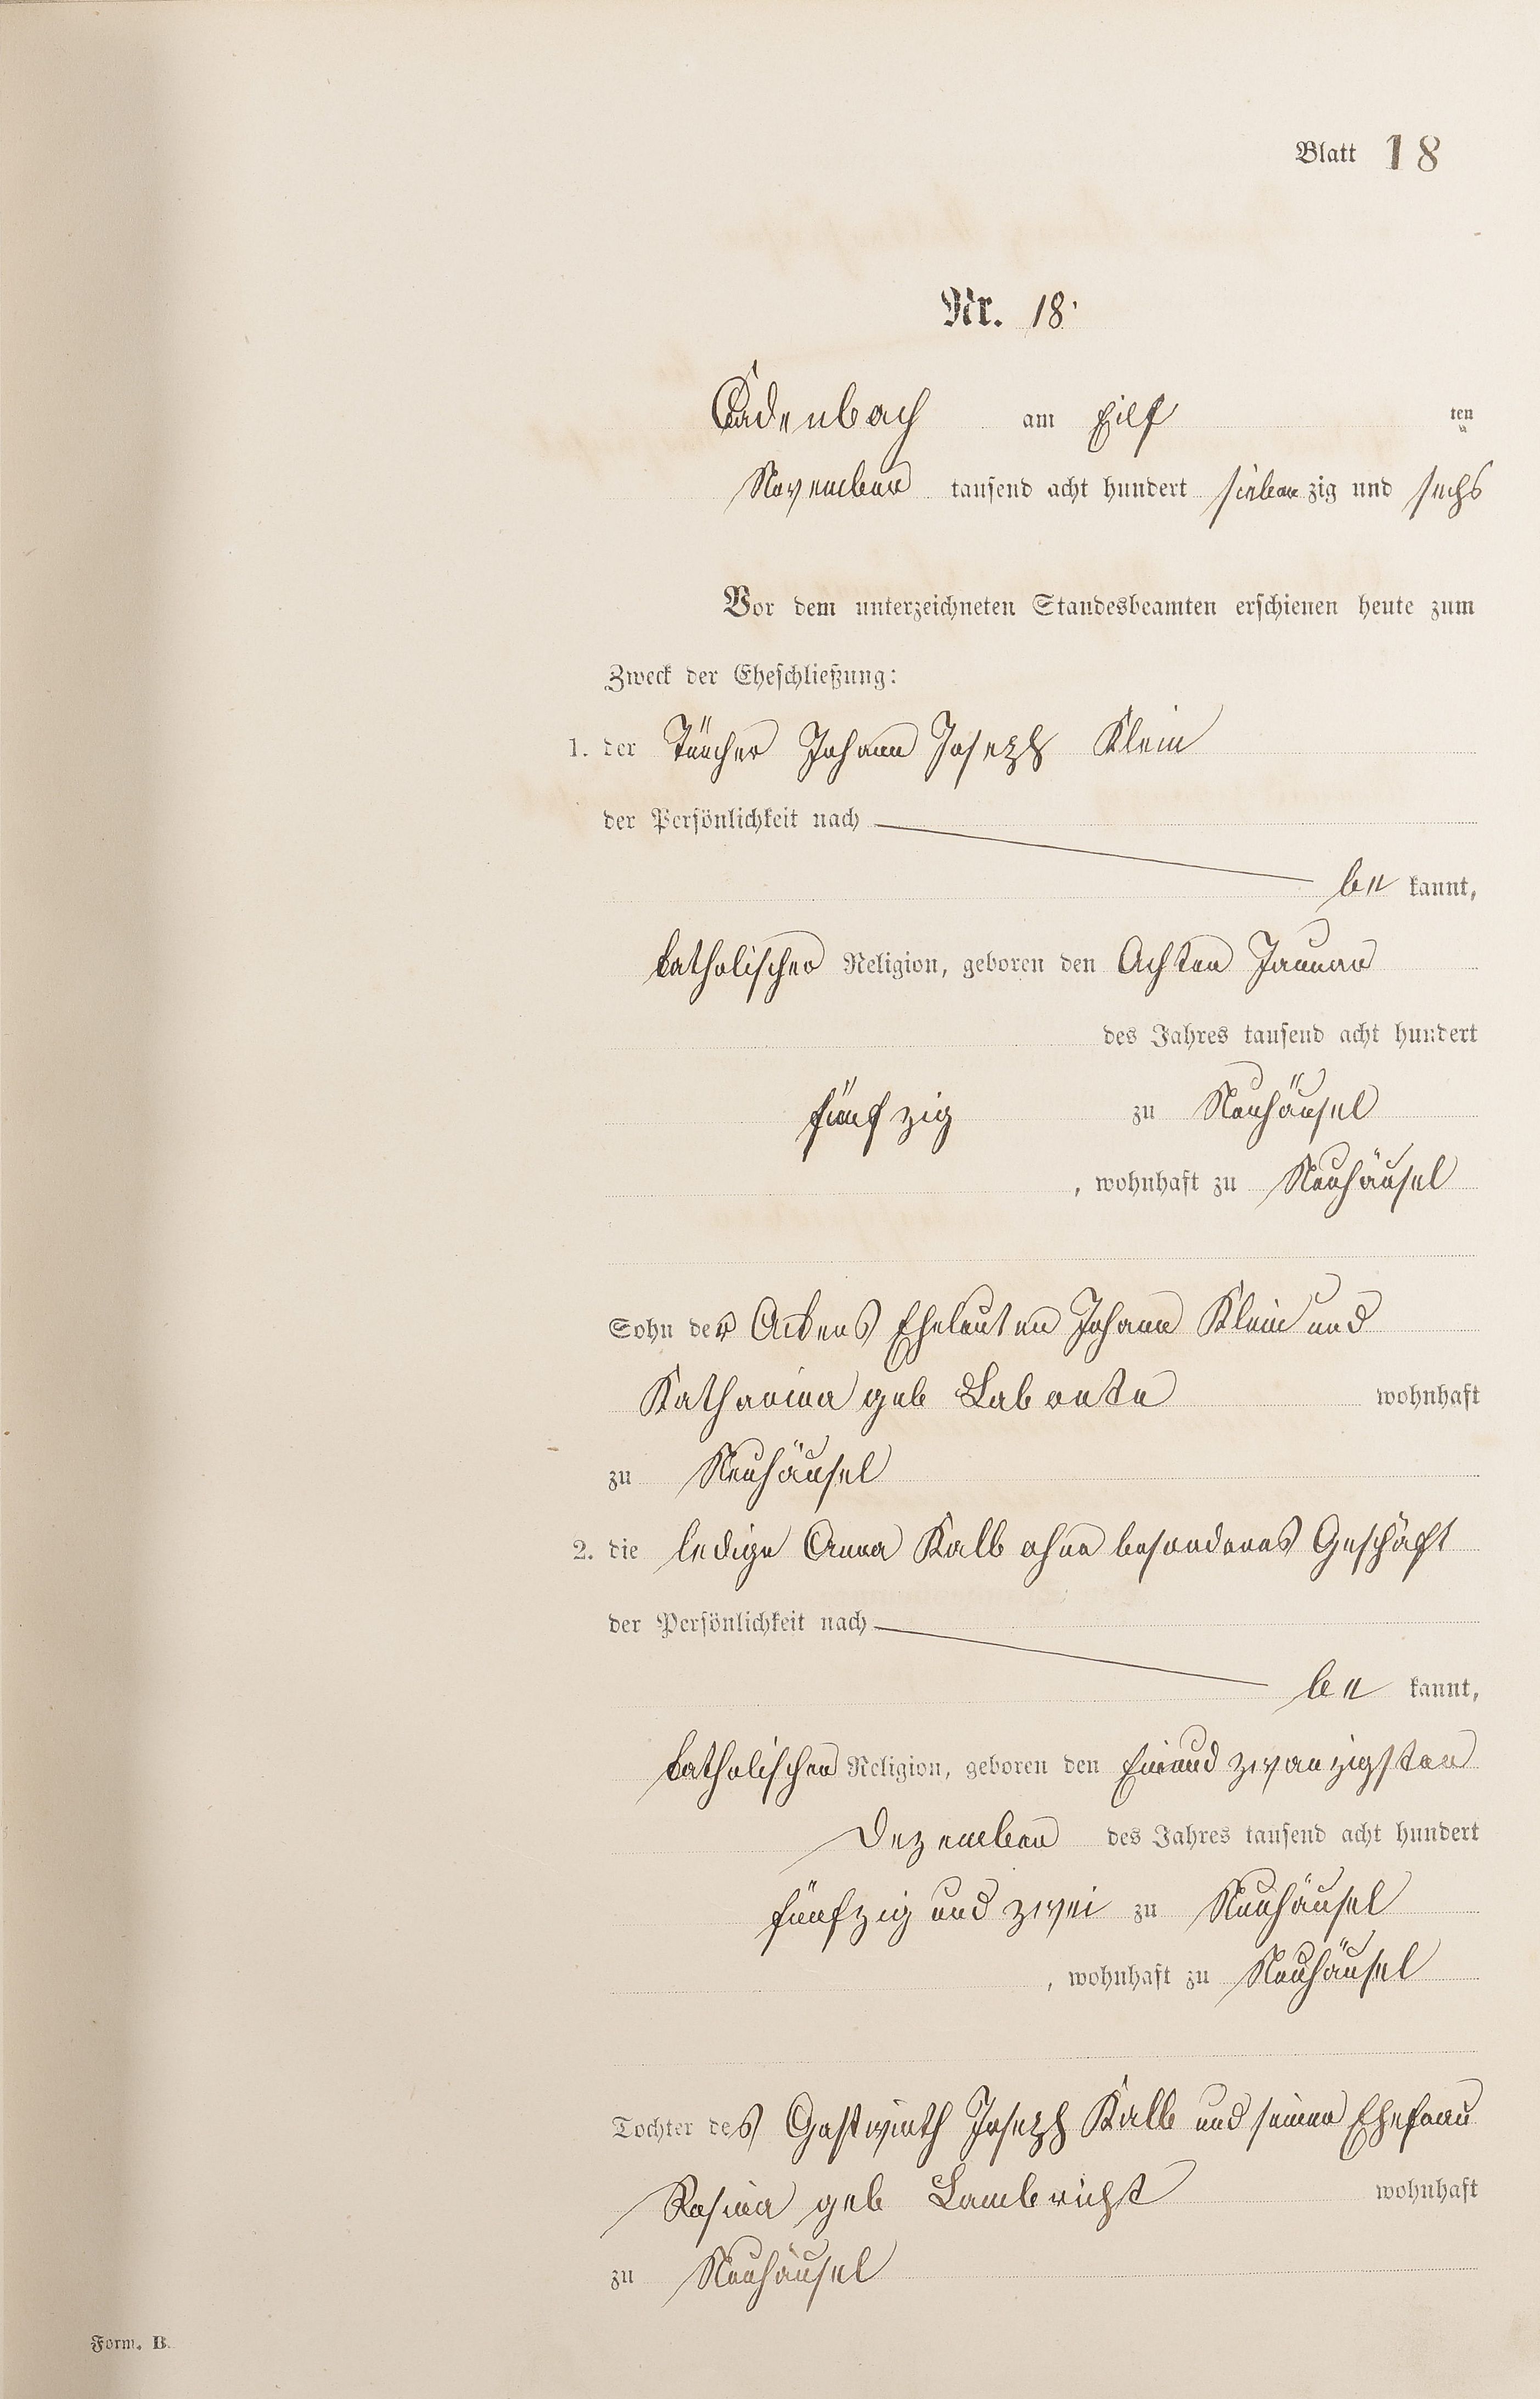 Blatt 18
Nr. 18.
Cadenbach am Eilf ten
November tausend acht hundert siebenzig und sechs
Vor dem unterzeichneten Standesbeamten erschienen heute zum
Zweck der Eheschließung:
1. der Tüncher Johann Joseph Klein
der Persönlichkeit nach
be kannt,
katholischer Religion, geboren den Achten Januar
des Jahres tausend acht hundert
fünfzig zu Neuhäusel
, wohnhaft zu Neuhäusel
Sohn der Ackers Eheleuten Johann Klein und
Katharina geb Labonte wohnhaft
zu Neuhäusel
2. die ledige Anna Kalb ohne besonderes Geschäft
der Persönlichkeit nach
be kannt,
katholischer Religion, geboren den Einundzwanzigsten
Dezember des Jahres tausend acht hundert
fünfzig und zwei zu Neuhäusel
, wohnhaft zu Neuhäusel
Tochter des Gastwirth Joseph Kalb und seiner Ehefrau
Rosina geb Lambricht wohnhaft
zu Neuhäusel
Form. B.